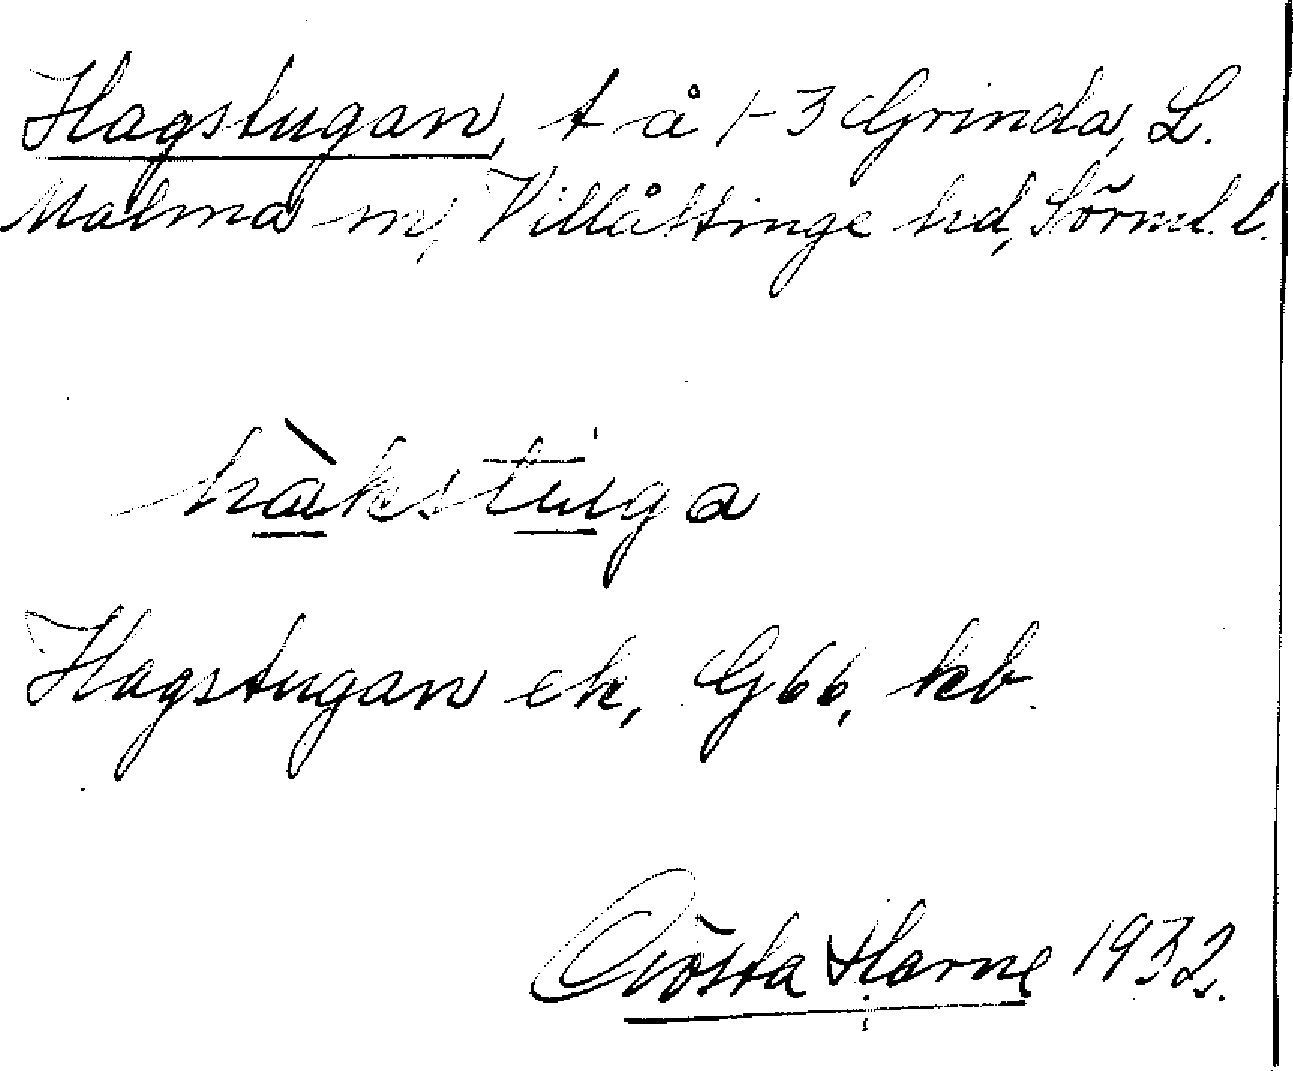 Hagstugan, t å 1-3 Grinda, L.
Malma sn, Villåttinge hd, Sörml. l.
hàkstuga
Hagstugan ek, G66, kb.
Gösta Harne 1932.